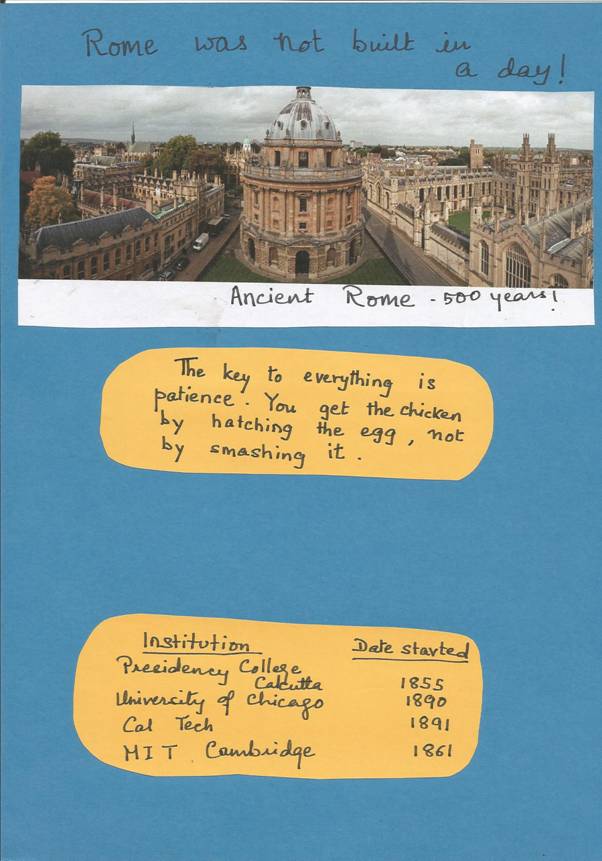 Rome was not built in
a day!
Ancient Rome - 500 years!
The key to everything is
patience. You get the chicken
by hatching the egg, not
by smashing it.
Institution Date started
Presidency College
Calcutta 1855
University of Chicago 1890
Cal Tech 1891
MIT Cambridge 1861